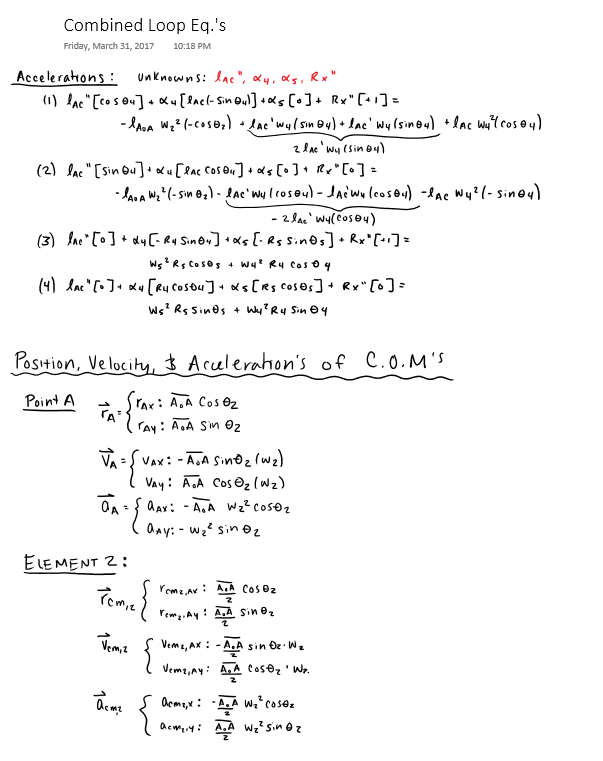 Combined Loop Eq.'s
Friday, March 31, 2017 10:18 PM
Accelerations: unknowns: lAC", α4, α5, Rx"
(1) lAC"[cosθ4] + α4[lAC(-sinθ4)] + α5[0] + Rx"[+1] =
-lAoA W2²(-cosθ2) + lAC'W4(sinθ4) + lAC'W4(sinθ4) + lAC W4²(cosθ4)
2 lAC'W4(sinθ4)
(2) lAC"[sinθ4] + α4[lAC cosθ4] + α5[0] + Rx"[0] =
-lAoA W2²(-sinθ2) - lAC'W4(cosθ4) - lAC'W4(cosθ4) - lAC W4²(-sinθ4)
-2 lAC'W4(cosθ4)
(3) lAC"[0] + α4[-R4 sinθ4] + α5[-R5 sinθ5] + Rx"[+1] =
W5² R5 cosθ5 + W4² R4 cosθ4
(4) lAC"[0] + α4[R4 cosθ4] + α5[R5 cosθ5] + Rx"[0] =
W5² R5 sinθ5 + W4² R4 sinθ4
Position, Velocity, & Acceleration's of C.O.M's
Point A
r⃗A = { rAx: A̅o̅A̅ cosθ2
rAy: A̅o̅A̅ sinθ2
V⃗A = { VAx: -A̅o̅A̅ sinθ2(W2)
VAy: A̅o̅A̅ cosθ2(W2)
a⃗A = { aAx: -A̅o̅A̅ W2² cosθ2
aAy: -W2² sinθ2
ELEMENT 2:
r⃗cm,2 { rcm2,Ax: A̅o̅A̅/2 cosθ2
rcm2,Ay: A̅o̅A̅/2 sinθ2
V⃗cm,2 { Vcm2,Ax: -A̅o̅A̅/2 sinθ2·W2
Vcm2,Ay: A̅o̅A̅/2 cosθ2·W2.
a⃗cm2 { acm2,x: -A̅o̅A̅/2 W2² cosθ2
acm2,y: A̅o̅A̅/2 W2² sinθ2